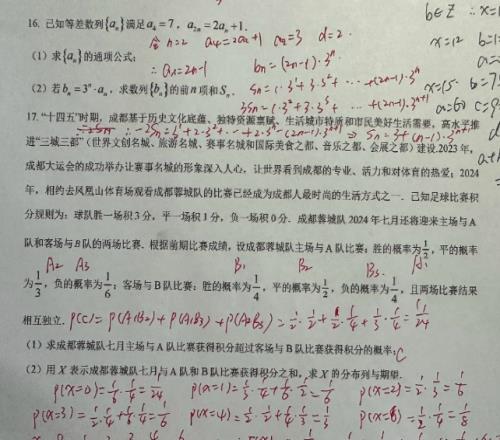 16. 已知等差数列{aₙ}满足a₄=7，a₂ₙ=2aₙ+1.
令n=2 a₄=2a₂+1 a₂=3 d=2.
(1) 求{aₙ}的通项公式；
∴aₙ=2n-1 bₙ=(2n-1)·3ⁿ
(2) 若bₙ=3ⁿ·aₙ，求数列{bₙ}的前n项和Sₙ.
Sₙ=1·3¹+3·3²+···+(2n-1)·3ⁿ
3Sₙ=1·3²+3·3³+···+(2n-1)·3ⁿ⁺¹
17. “十四五”时期，成都基于历史文化底蕴、独特资源禀赋、生活城市特质和市民美好生活需要，高水平推
⇒ Sₙ=3+(n-1)·3ⁿ⁺¹
进“三城三都”（世界文创名城、旅游名城、赛事名城和国际美食之都、音乐之都、会展之都）建设.2023年，
成都大运会的成功举办让赛事名城的形象深入人心，让世界看到成都的专业、活力和对体育的热爱；2024
年，相约去凤凰山体育场观看成都蓉城队的比赛已经成为成都人最时尚的生活方式之一. 已知足球比赛积
分规则为：球队胜一场积3分，平一场积1分，负一场积0分. 成都蓉城队2024年七月还将迎来主场与A
队和客场与B队的两场比赛. 根据前期比赛成绩，设成都蓉城队主场与A队比赛：胜的概率为1/2，平的概率
A₂ A₃ B₁ B₂ B₃ A₁
为1/3，负的概率为1/6；客场与B队比赛：胜的概率为1/4，平的概率为1/2，负的概率为1/4，且两场比赛结果
相互独立. P(C)=P(A₁B₂)+P(A₁B₃)+P(A₂B₃)=1/2·1/2+1/2·1/4+1/3·1/4=11/24
(1) 求成都蓉城队七月主场与A队比赛获得积分超过客场与B队比赛获得积分的概率；C
(2) 用X表示成都蓉城队七月与A队和B队比赛获得积分之和，求X的分布列与期望.
P(X=0)=1/6·1/4=1/24 P(X=1)=1/3·1/4+1/6·1/2=1/6 P(X=2)=1/2·1/3=1/6
P(X=3)=1/2·1/4+1/6·1/4=1/6 P(X=4)=1/2·1/2+1/3·1/4=1/3 P(X=6)=1/2·1/4=1/8
b∈Z
x=12
x=15